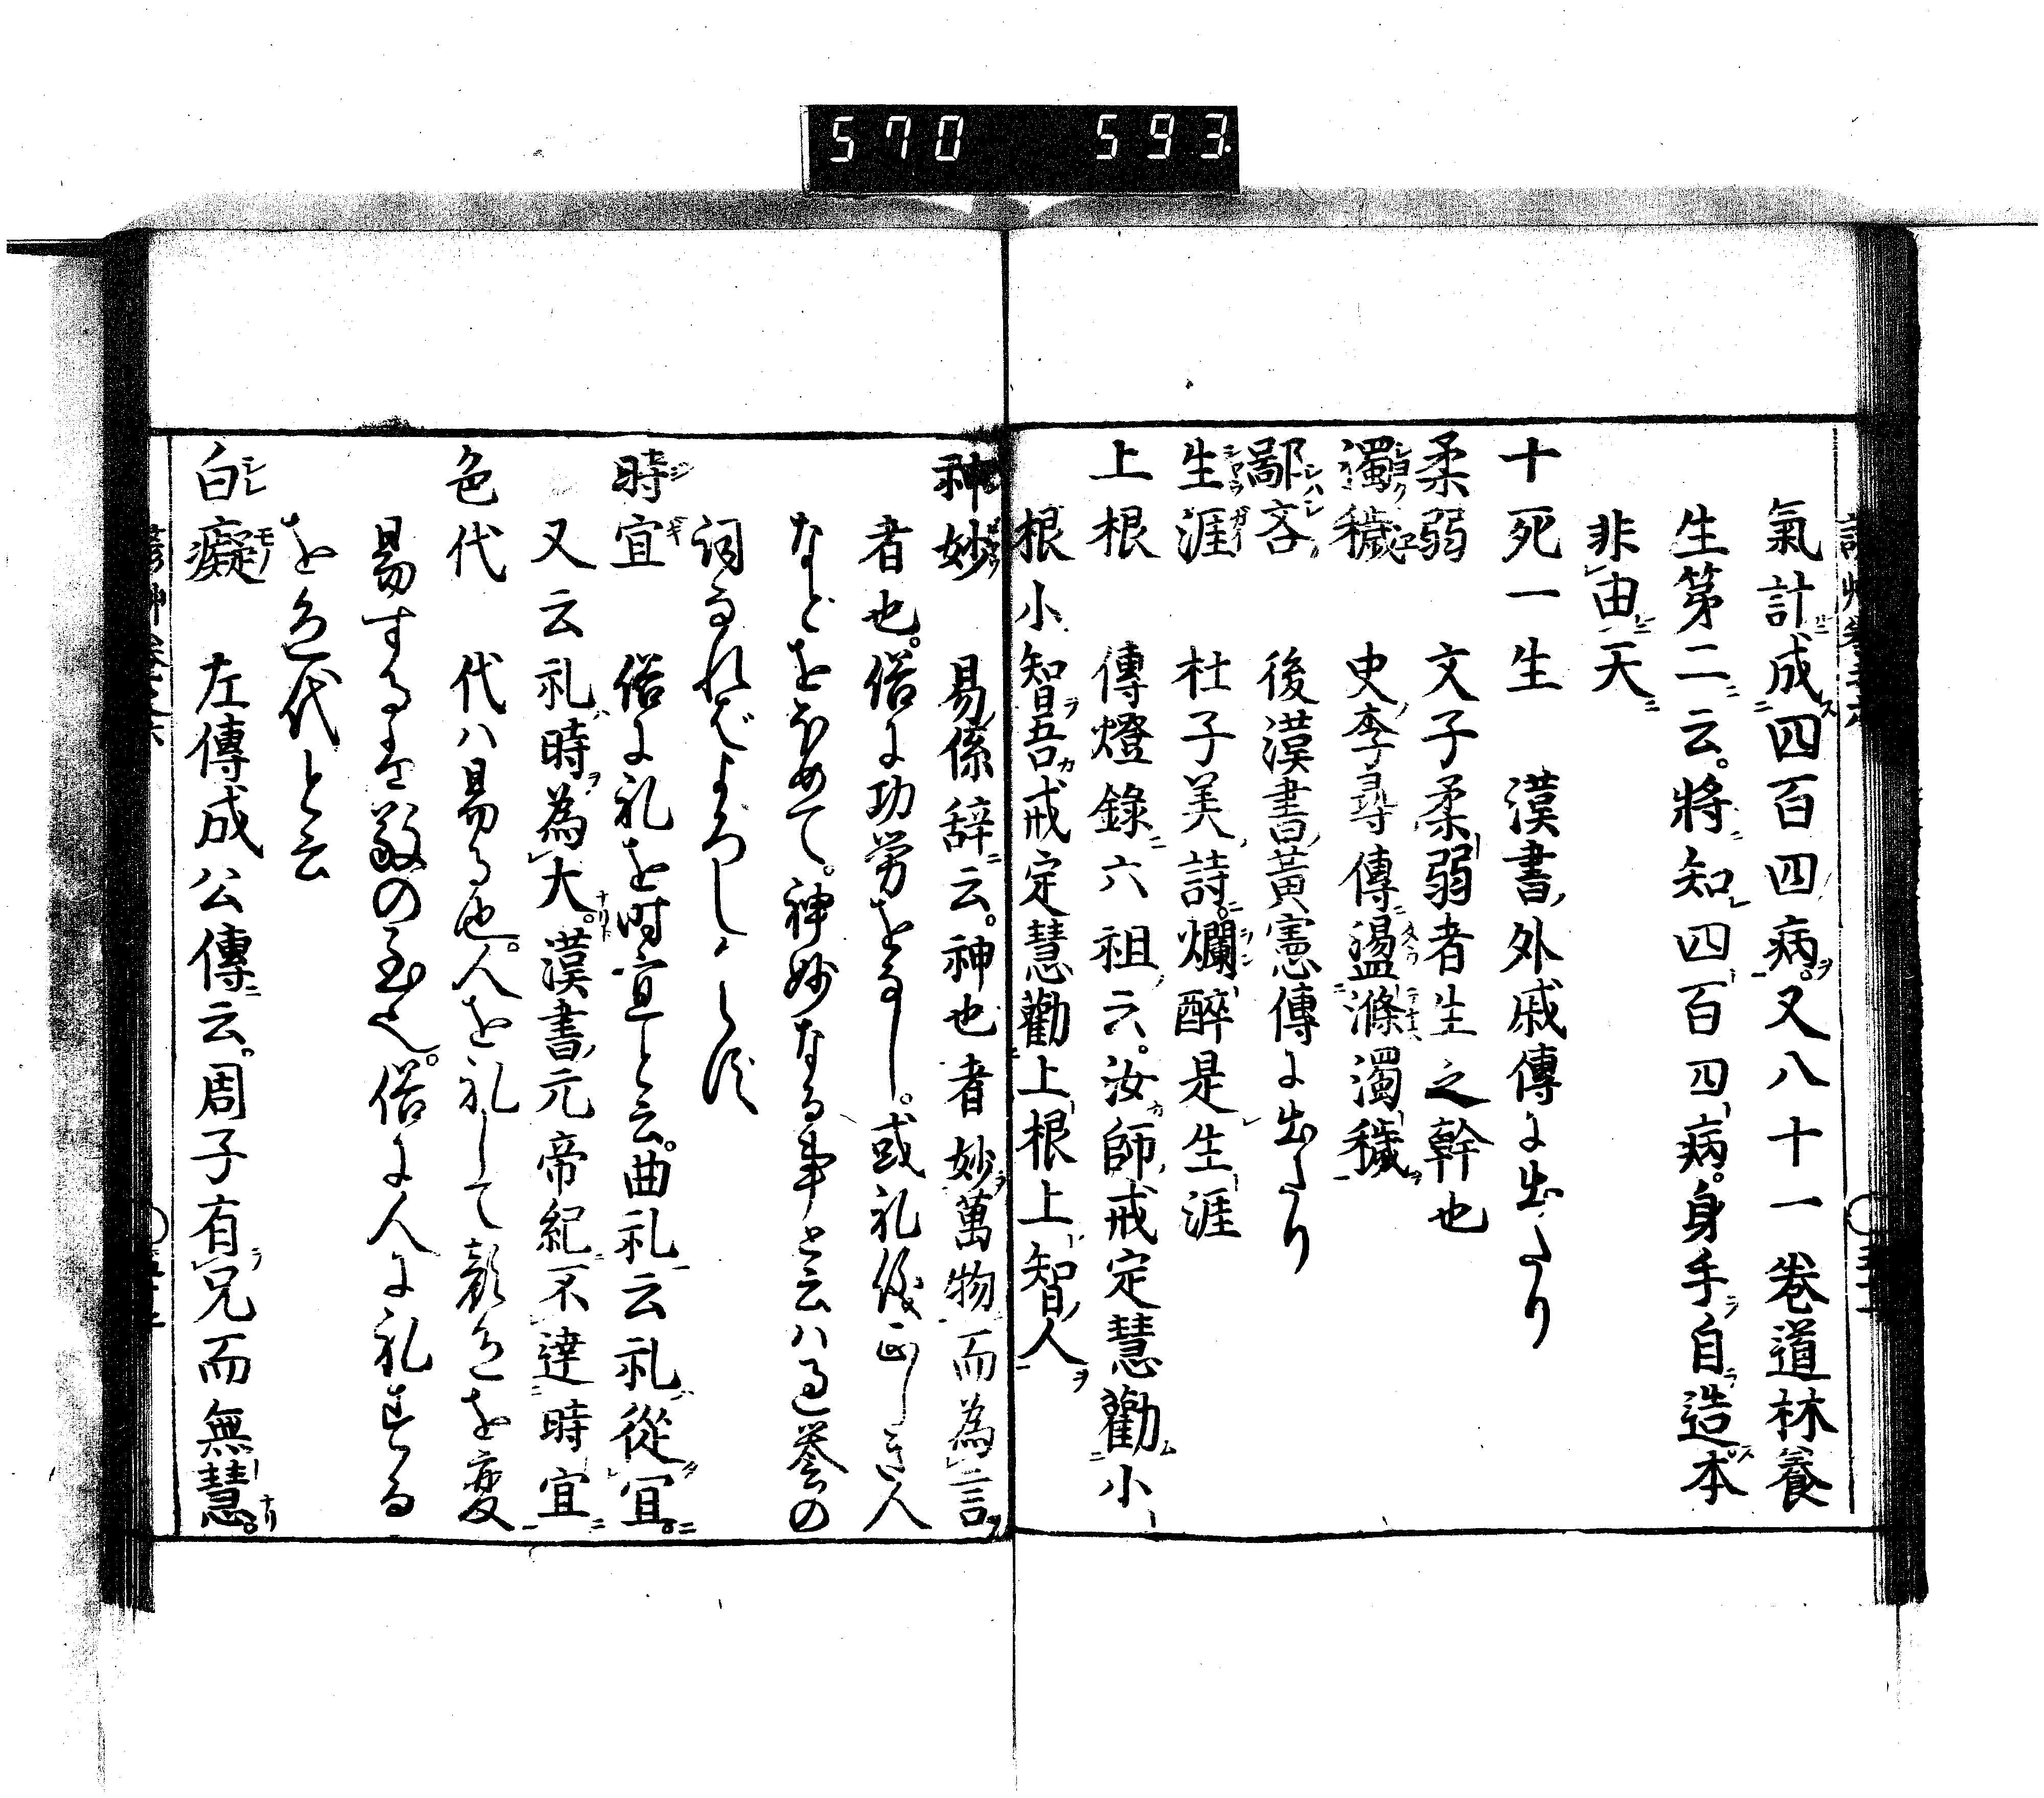 570 593
氣計成四百四病。又八十一巻道林養
生第二云。將知四百四病。身手自造本
非由天
十死一生 漢書外戚傳に出たり
柔弱 文子柔弱者生之幹也
濁穢 史李尋傳盪滌濁穢
鄙吝 後漢書黄憲傳に出たり
生涯 杜子美詩。爛醉是生涯
上根 傳燈録六祖云。汝師戒定慧勸小
根小智吾戒定慧勸上根上智人
神妙 易係辞云。神也者妙萬物而為言
者也。俗に功労をなし。或礼儀正しき人
などをほめて。神妙なる事と云ハ過誉の
詞なれどよろしからず
時宜 俗に礼を時宜と云。曲礼云礼從宜。
又云礼時為大。漢書元帝紀不達時宜
色代 代ハ易る也。人を礼して顔色を変
易するは敬の至也。俗に人に礼する
を色代と云
白癡 左傳成公傳云。周子有兄而無慧。